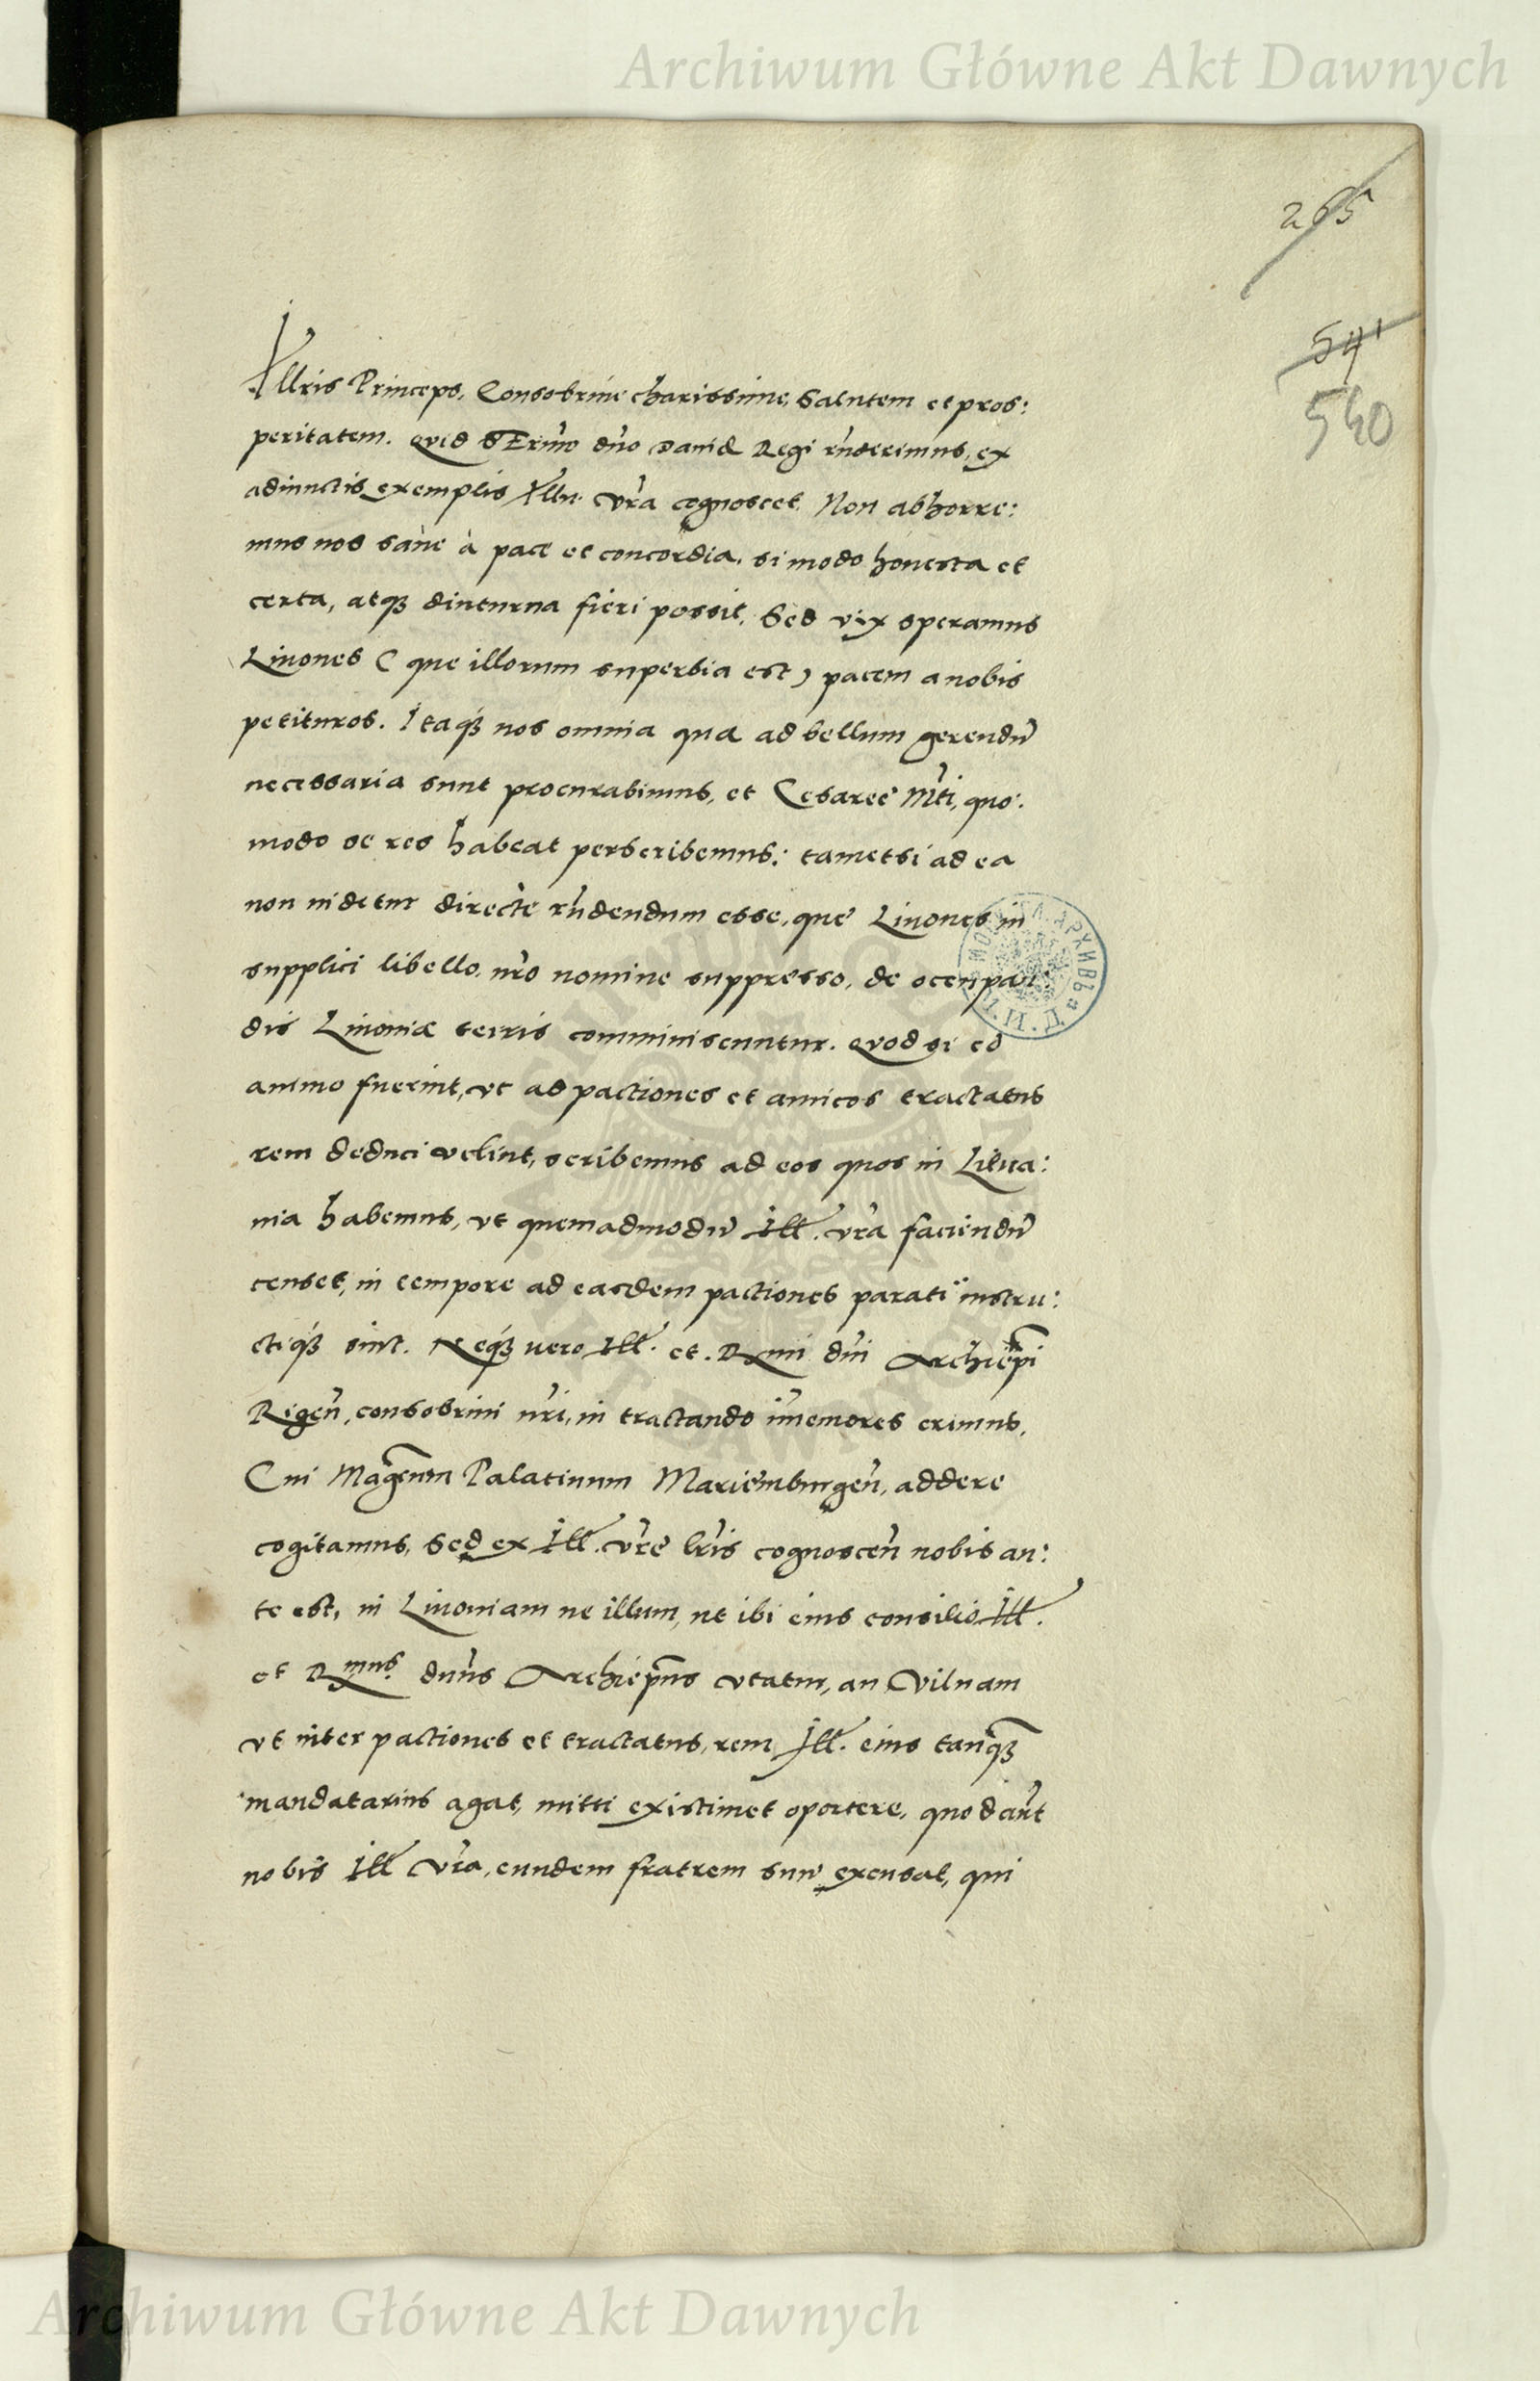 Archiwum Główne Akt Dawnych
265
541
540
Illris Princeps, Consobrine charissime, Salutem et pros:
peritatem. Quid SErmo dño Daniæ Regi rñderimus, ex
adiunctis exemplis Illu. vra cognoscet. Non abhorre:
mus nos sane à pace et concordia, si modo honesta et
certa, atq3 diuturna fieri possit, Sed vix speramus
Liuones ( que illorum superbia est ) pacem a nobis
petituros. Itaq3 nos omnia qua ad bellum gerendũ
necessaria sunt procurabimus, et Cesareę Mti, quo:
modo se res habeat perscribemus: tametsi ad ea
non uidetur directe rñdendum esse, quę Liuones in
supplici libello, nro nomine suppresso, de occupan:
dis Liuoniæ terris comminiscuntur. Quod si eo
animo fuerint, vt ad pactiones et amicos tractatus
rem deduci velint, scribemus ad eos quos in Litua:
nia habemus, vt quemadmodũ Ill. vra faciendũ
censet, in tempore ad easdem pactiones parati instru:
ctiq3 sint. Neq3 vero Ill. et. Rmi dñi Archiepi
Rigeñ, consobrini nri, in tractando im̃emores erimus,
Cui Magcum Palatinum Mariemburgeñ, addere
cogitamus, Sed ex Ill. vrę lris cognosceñ nobis an:
te est, in Liuoniam ne illum, ut ibi eius consilio Ill.
et Rmus dnus Archiepus vtatur, an Vilnam
vt inter pactiones et tractatus, rem Ill. eius tanq3
mandatarius agat, mitti existimet oportere, quod aut
nobis Ill vra, eundem fratrem suũ excusat, qui
Archiwum Główne Akt Dawnych